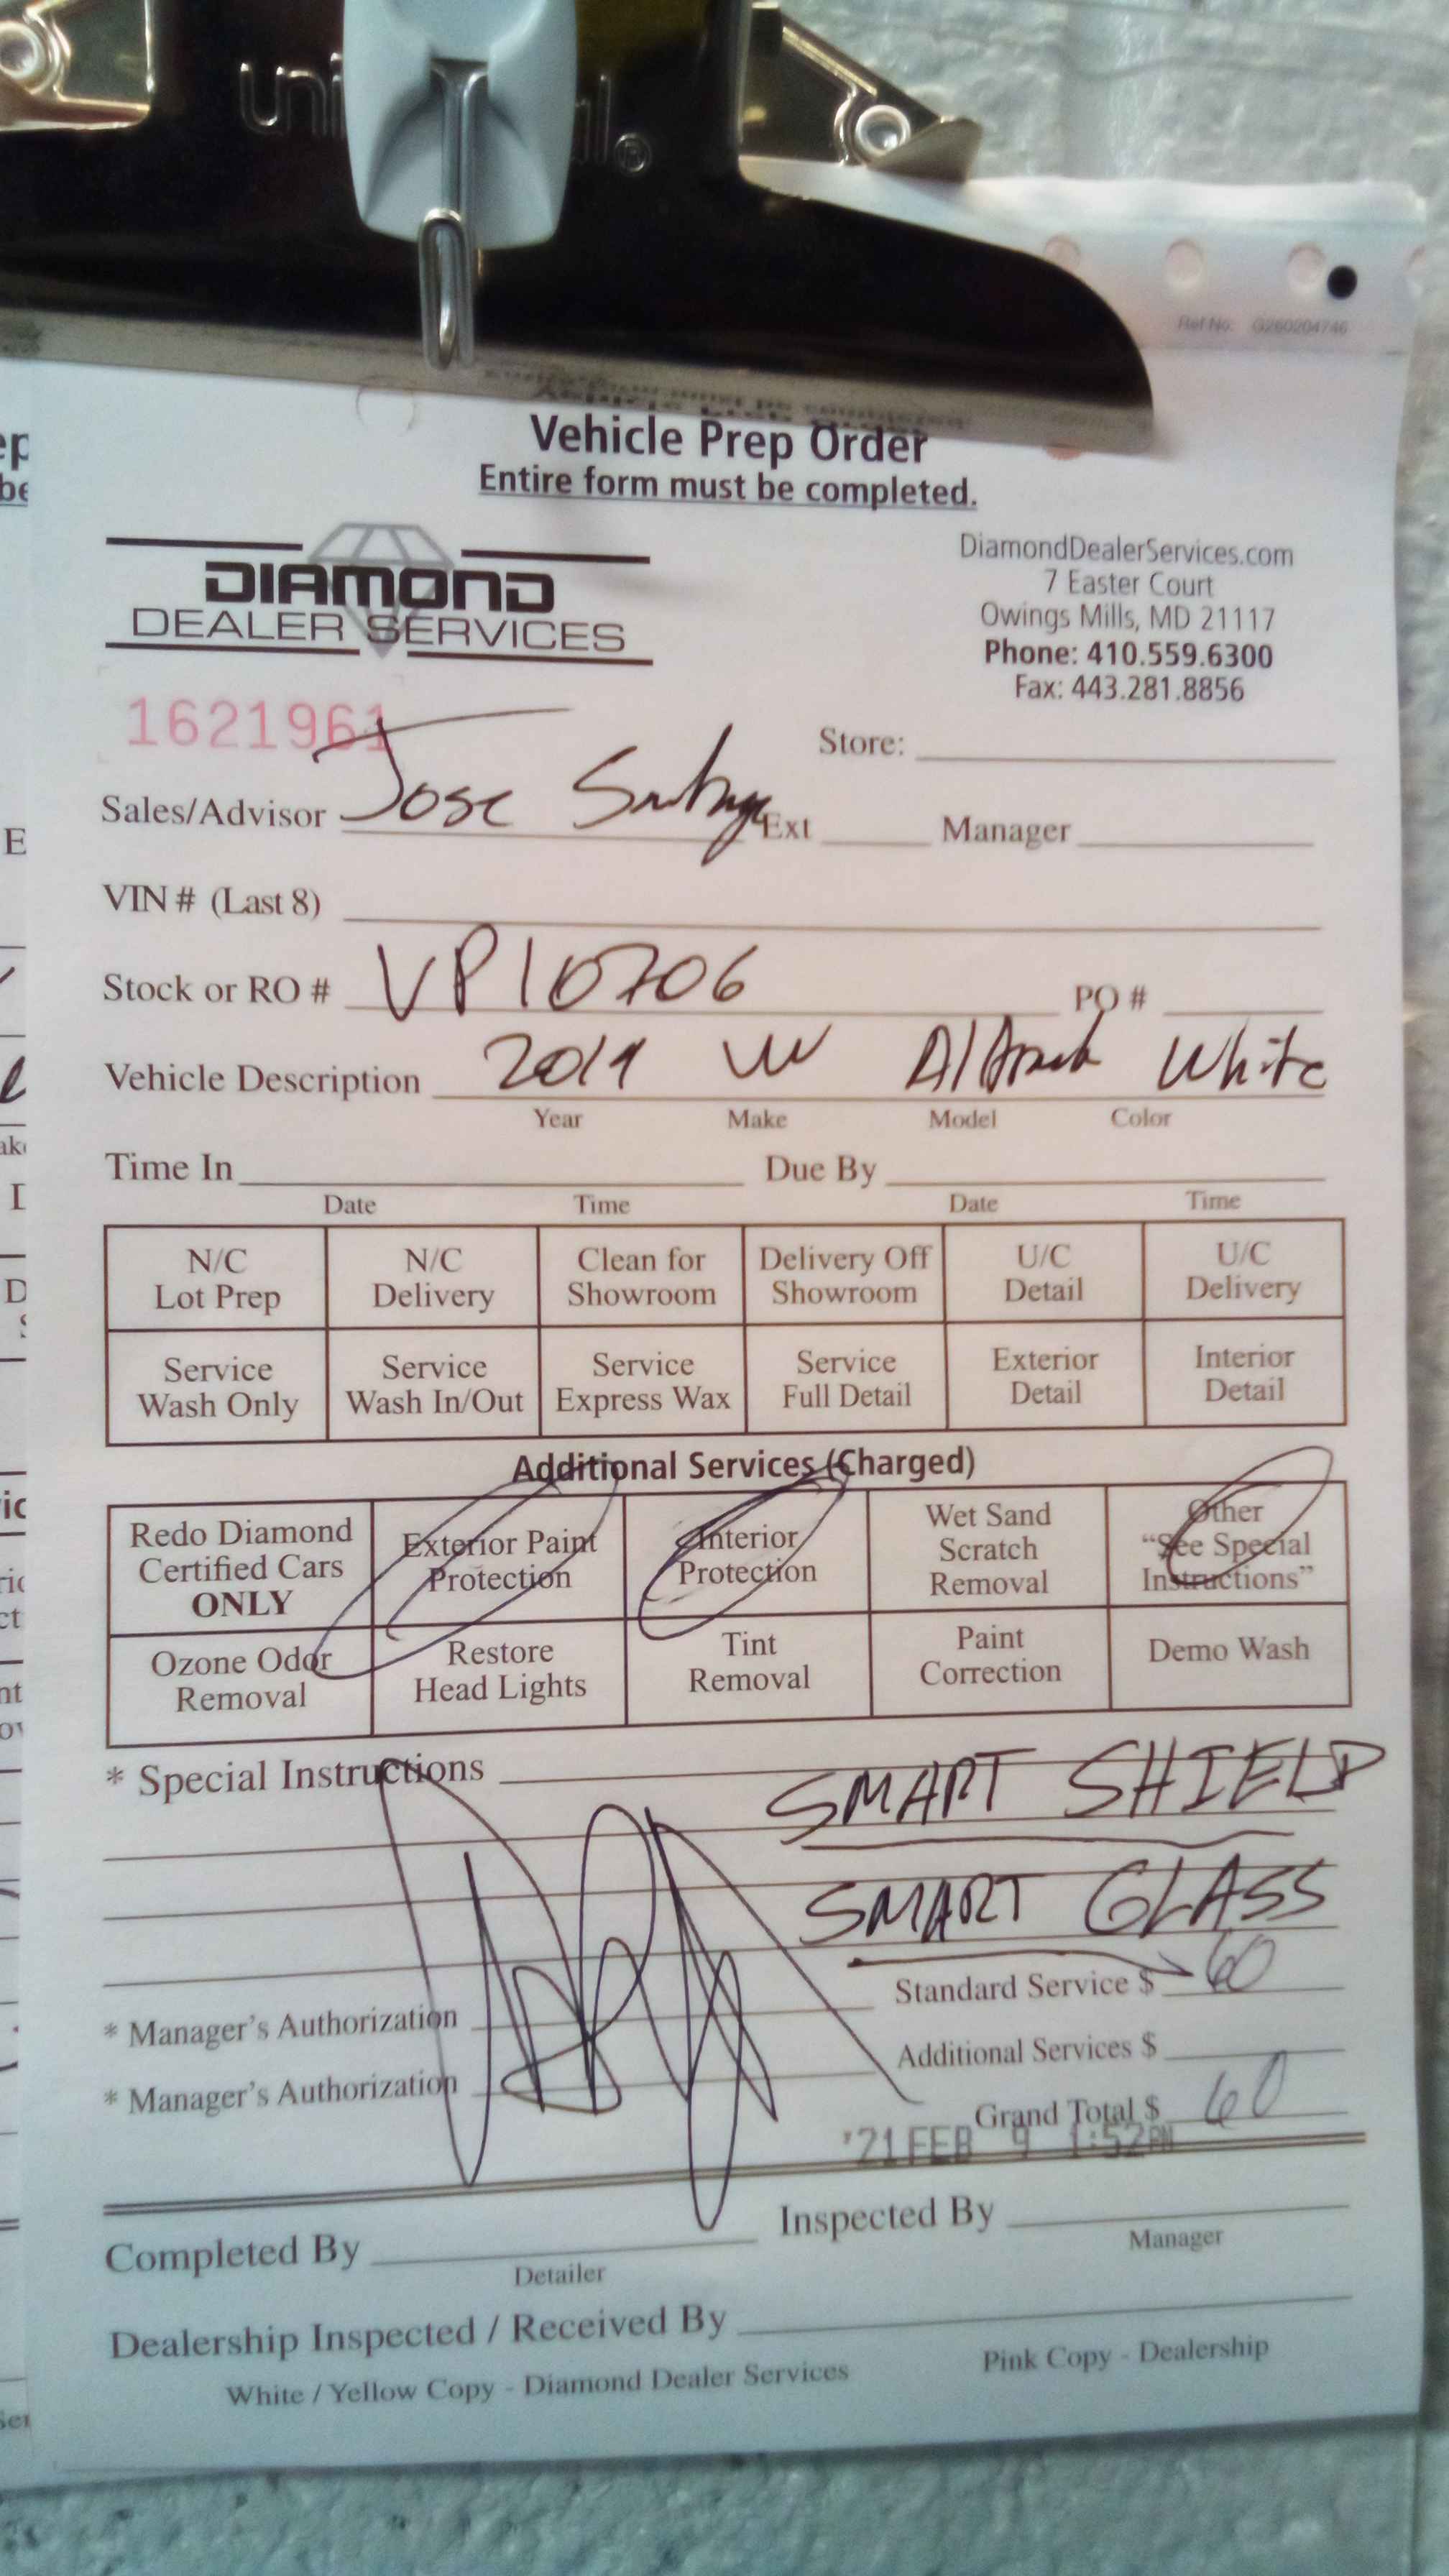 Ref No: G260204746
Vehicle Prep Order
Entire form must be completed.
DIAMOND
DEALER SERVICES
DiamondDealerServices.com
7 Easter Court
Owings Mills, MD 21117
Phone: 410.559.6300
Fax: 443.281.8856
1621961
Store:
Sales/Advisor Jose Ext Manager
VIN # (Last 8)
Stock or RO # VP10706 PO #
Vehicle Description 2019 VW Alltrack White
Year Make Model Color
Time In Due By
Date Time Date Time
N/C Lot Prep N/C Delivery Clean for Showroom Delivery Off Showroom U/C Detail U/C Delivery
Service Wash Only Service Wash In/Out Service Express Wax Service Full Detail Exterior Detail Interior Detail
Additional Services (Charged)
Redo Diamond Certified Cars ONLY Exterior Paint Protection Interior Protection Wet Sand Scratch Removal Other "See Special Instructions"
Ozone Odor Removal Restore Head Lights Tint Removal Paint Correction Demo Wash
* Special Instructions SMART SHIELD
SMART GLASS
Standard Service $ 60
* Manager's Authorization
Additional Services $
* Manager's Authorization
Grand Total $ 60
'21 FEB 9 1:52PM
Completed By Inspected By
Detailer Manager
Dealership Inspected / Received By
White / Yellow Copy - Diamond Dealer Services Pink Copy - Dealership